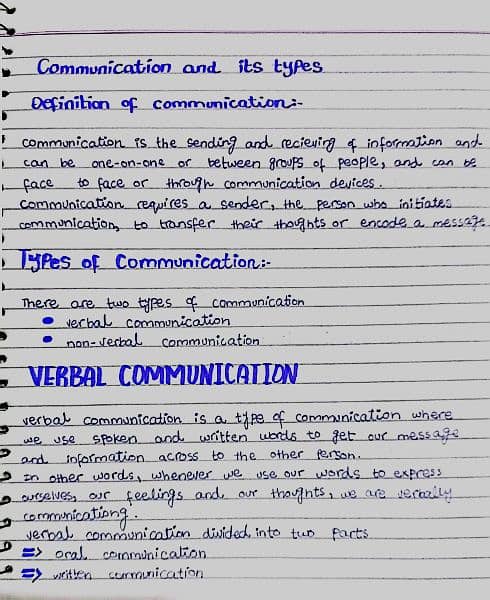 Communication and its types
Definition of communication:-
communication is the sending and recieving of information and
can be one-on-one or between groups of people, and can be
face to face or through communication devices.
communication requires a sender, the person who initiates
communication, to transfer their thoughts or encode a message
Types of Communication:-
There are two types of communication
• verbal communication
• non-verbal communication
VERBAL COMMUNICATION
verbal communication is a type of communication where
we use spoken and written words to get our message
and information across to the other person.
In other words, whenever we use our words to express
ourselves, our feelings and our thoughts, we are verbally
communicationg.
verbal communication divided into two parts
=> oral communication
=> written communication